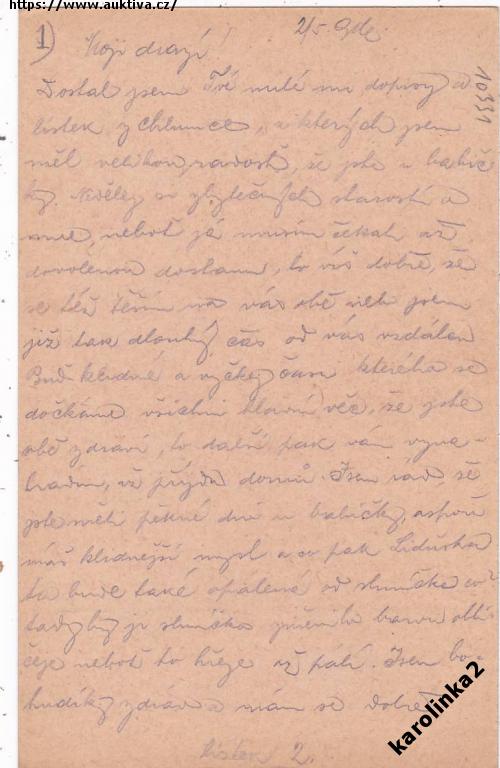 https://www.auktiva.cz/
1)
2/5 
Moji drazí!
10331
Dostal jsem Tvé milé mi dopisy a
lístek z Chlumce, z kterých jsem
měl velikou radost, že jste u babič
ky. Nedělej si zbytečných starostí o
mne, neboť já musím čekat až
dovolenou dostanu, to víš dobře, že
se též těším na vás obě neb jsem
již tak dlouhý čas od vás vzdálen
Buď klidné a vyčkej času kterého se
dočkáme všichni hlavní věc, že jste
obě zdrávi, to další pak vám vyna-
hradím, až přijdu domů. Jsem rád že
jste měli pěkné dni u babičky, aspoň
máš klidnější mysl a co pak Liduška
ta bude také opálená od sluníčka co?
tady by jí sluníčko změnilo barvu obli-
čeje neboť to hřeje až pálí. Jsem bo-
hudíky zdráv a mám se dobře
lístek 2.
karolinka2